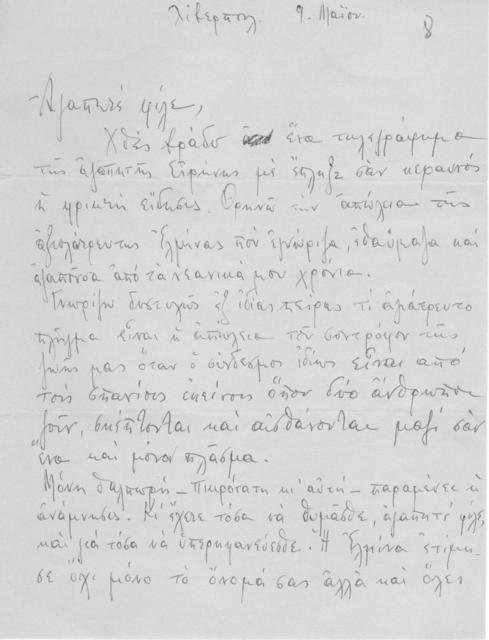 Λίβερπουλ. 9. Μαΐου.
8
Ἀγαπητέ φίλε,
Χθές βράδυ ἕνα τηλεγράφημα
τῆς ἀγαπητῆς Εἰρήνης μέ ἔπληξε σάν κεραυνός
ἡ φρικτή εἴδησις. Θρηνῶ τήν ἀπώλεια τῆς
ἀξιολάτρευτης Ἑλμίνας πού ἐγνώριζα, ἐθαύμαζα καί
ἀγαποῦσα ἀπό τά νεανικά μου χρόνια.
Γνωρίζω δυστυχῶς ἐξ ἰδίας πείρας τί ἀγιάτρευτο
πλῆγμα εἶναι ἡ ἀπώλεια τοῦ συντρόφου τῆς
ζωῆς μας ὅταν ὁ σύνδεσμος ἰδίως εἶναι ἀπό
τούς σπανίους ἐκείνους ὅπου δύο ἄνθρωποι
ζοῦν, σκέπτονται καί αἰσθάνονται μαζί σάν
ἕνα καί μόνον πλάσμα.
Μόνη θαλπωρή – πικρότατη κι' αὐτή – παραμένει ἡ
ἀνάμνησις. Κι' ἔχετε τόσα νά θυμᾶσθε, ἀγαπητέ φίλε,
καί γιά τόσα νά ὑπερηφανεύεσθε. Ἡ Ἑλμίνα ἐτίμη-
σε ὄχι μόνο τό ὄνομά σας ἀλλά καί ὅλες